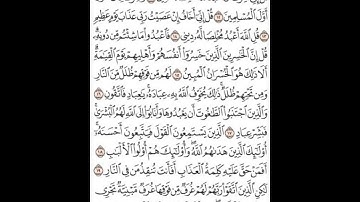 أَوَّلَ ٱلْمُسْلِمِينَ ١٢ قُلْ إِنِّىٓ أَخَافُ إِنْ عَصَيْتُ رَبِّى عَذَابَ يَوْمٍ عَظِيمٍ
١٣ قُلِ ٱللَّهَ أَعْبُدُ مُخْلِصًا لَّهُۥ دِينِى ١٤ فَٱعْبُدُوا۟ مَا شِئْتُم مِّن دُونِهِۦ
قُلْ إِنَّ ٱلْخَٰسِرِينَ ٱلَّذِينَ خَسِرُوٓا۟ أَنفُسَهُمْ وَأَهْلِيهِمْ يَوْمَ ٱلْقِيَٰمَةِ
أَلَا ذَٰلِكَ هُوَ ٱلْخُسْرَانُ ٱلْمُبِينُ ١٥ لَهُم مِّن فَوْقِهِمْ ظُلَلٌ مِّنَ ٱلنَّارِ
وَمِن تَحْتِهِمْ ظُلَلٌ ذَٰلِكَ يُخَوِّفُ ٱللَّهُ بِهِۦ عِبَادَهُۥ يَٰعِبَادِ فَٱتَّقُونِ ١٦
وَٱلَّذِينَ ٱجْتَنَبُوا۟ ٱلطَّٰغُوتَ أَن يَعْبُدُوهَا وَأَنَابُوٓا۟ إِلَى ٱللَّهِ لَهُمُ ٱلْبُشْرَىٰ
فَبَشِّرْ عِبَادِ ١٧ ٱلَّذِينَ يَسْتَمِعُونَ ٱلْقَوْلَ فَيَتَّبِعُونَ أَحْسَنَهُۥٓ
أُو۟لَٰٓئِكَ ٱلَّذِينَ هَدَىٰهُمُ ٱللَّهُ وَأُو۟لَٰٓئِكَ هُمْ أُو۟لُوا۟ ٱلْأَلْبَٰبِ ١٨
أَفَمَنْ حَقَّ عَلَيْهِ كَلِمَةُ ٱلْعَذَابِ أَفَأَنتَ تُنقِذُ مَن فِى ٱلنَّارِ ١٩
لَٰكِنِ ٱلَّذِينَ ٱتَّقَوْا۟ رَبَّهُمْ لَهُمْ غُرَفٌ مِّن فَوْقِهَا غُرَفٌ مَّبْنِيَّةٌ تَجْرِى